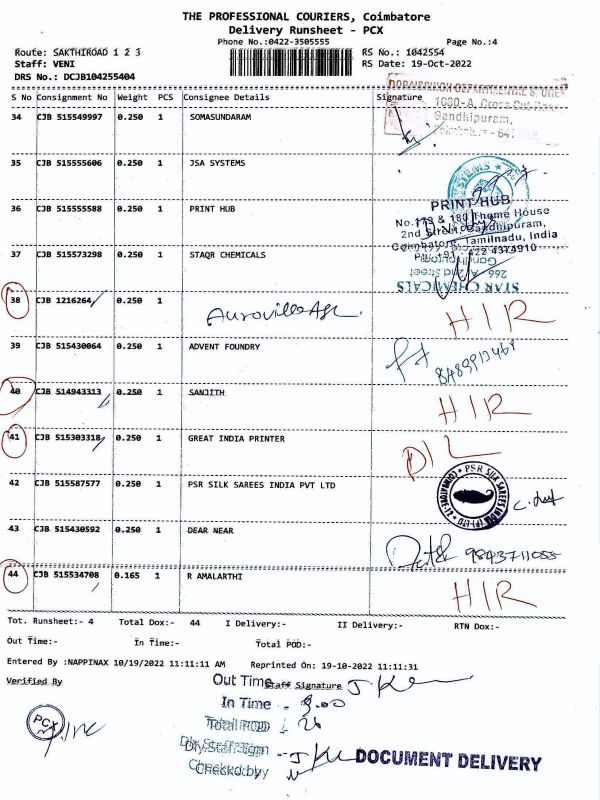 THE PROFESSIONAL COURIERS, Coimbatore
Delivery Runsheet - PCX
Phone No.:0422-3505555 Page No.:4
Route: SAKTHIROAD 1 2 3 RS No.: 1042554
Staff: VENI RS Date: 19-Oct-2022
DRS No.: DCJB104255404
S No Consignment No Weight PCS Consignee Details Signature
1090-A, Cross Cut Road
Gandhipuram,
34 CJB 515549997 0.250 1 SOMASUNDARAM
35 CJB 515555606 0.250 1 JSA SYSTEMS
PRINT HUB
36 CJB 515555588 0.250 1 PRINT HUB
No.179 & 180 Thome House
2nd Street, Gandhipuram,
Coimbatore, Tamilnadu, India
37 CJB 515573298 0.250 1 STAQR CHEMICALS
Ph: +91 - 422 4374910
Gandhipuram
STAR CHEMICALS
38 CJB 1216264 0.250 1 HIR
39 CJB 515430064 0.250 1 ADVENT FOUNDRY
40 CJB 514943313 0.250 1 SANJITH HIR
41 CJB 515303318 0.250 1 GREAT INDIA PRINTER D/L
42 CJB 515587577 0.250 1 PSR SILK SAREES INDIA PVT LTD
PSR SILK SAREES INDIA (P) LTD COIMBATORE-12
43 CJB 515430592 0.250 1 DEAR NEAR
9843711055
44 CJB 515534708 0.165 1 R AMALARTHI HIR
Tot. Runsheet:- 4 Total Dox:- 44 I Delivery:- II Delivery:- RTN Dox:-
Out Time:- In Time:- Total POD:-
Entered By :NAPPINAX 10/19/2022 11:11:11 AM Reprinted On: 19-10-2022 11:11:31
Verified By Out Time Staff Signature
In Time
PCX
Total POD 26
Dly.Staff Sign
Checked by
DOCUMENT DELIVERY